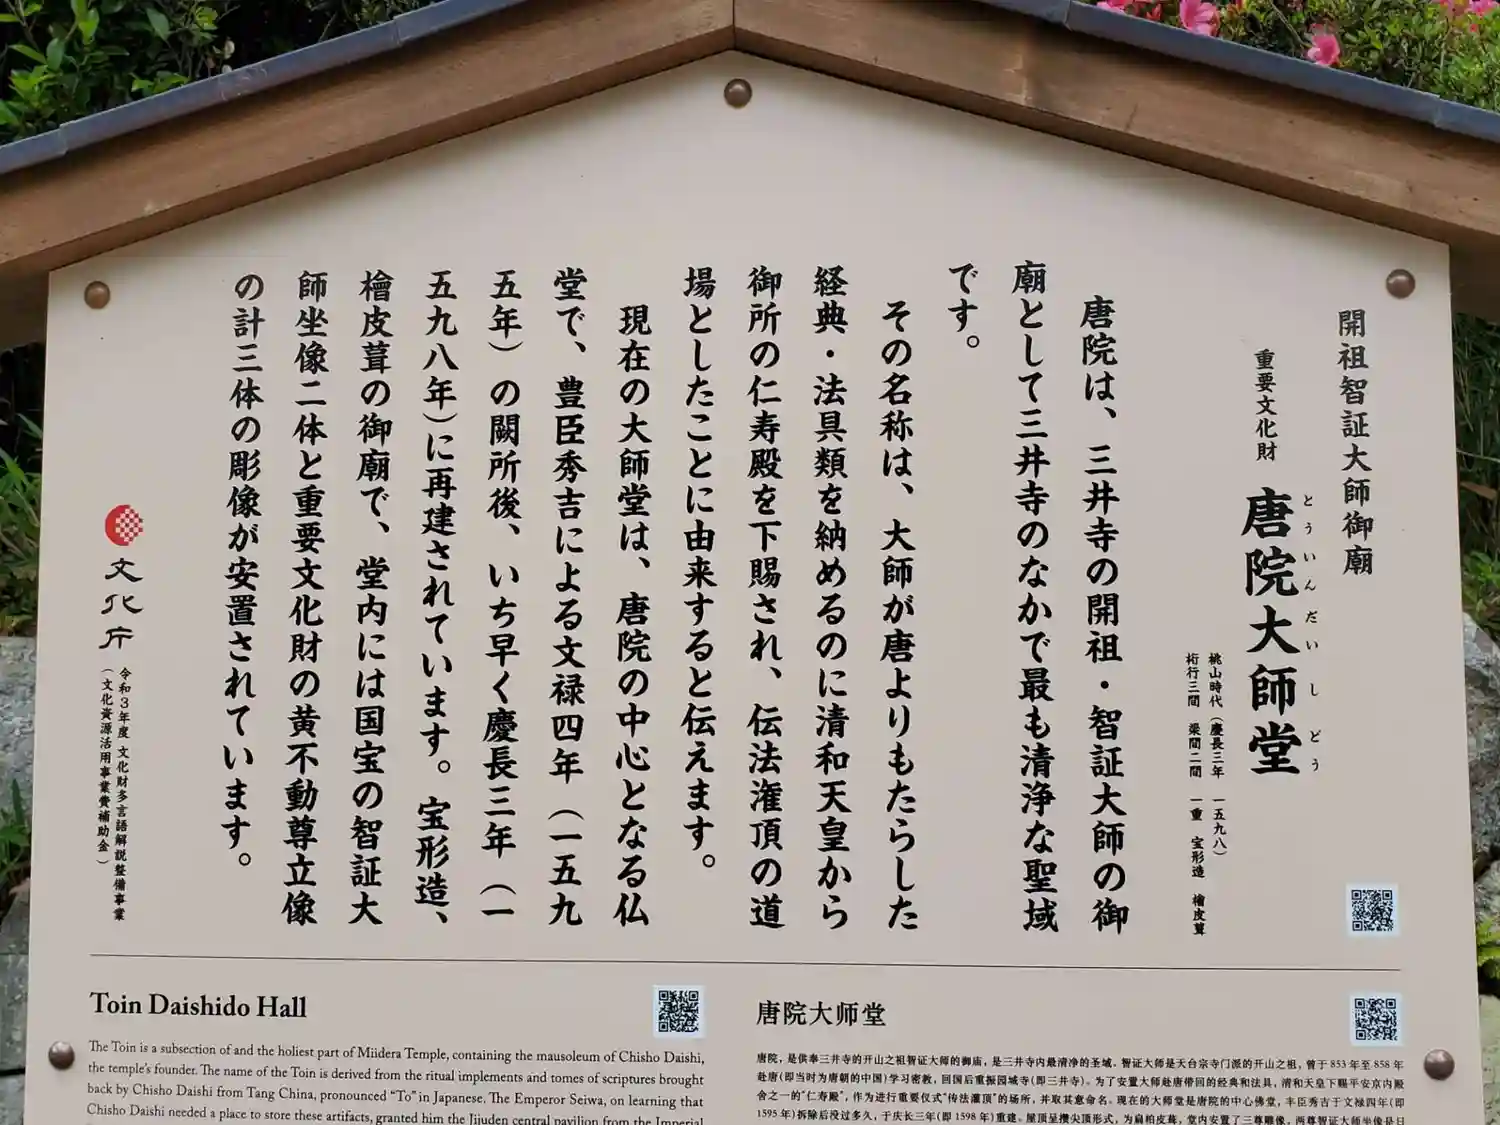 開祖智証大師御廟
重要文化財 唐院大師堂
とういんだいしどう
桃山時代（慶長三年 一五九八）
桁行三間 梁間二間 一重 宝形造 檜皮葺
唐院は、三井寺の開祖・智証大師の御
廟として三井寺のなかで最も清浄な聖域
です。
その名称は、大師が唐よりもたらした
経典・法具類を納めるのに清和天皇から
御所の仁寿殿を下賜され、伝法潅頂の道
場としたことに由来すると伝えます。
現在の大師堂は、唐院の中心となる仏
堂で、豊臣秀吉による文禄四年（一五九
五年）の闕所後、いち早く慶長三年（一
五九八年）に再建されています。宝形造、
檜皮葺の御廟で、堂内には国宝の智証大
師坐像二体と重要文化財の黄不動尊立像
の計三体の彫像が安置されています。
文化庁
令和3年度 文化財多言語解説整備事業
（文化資源活用事業費補助金）
Toin Daishido Hall
The Toin is a subsection of and the holiest part of Miidera Temple, containing the mausoleum of Chisho Daishi,
the temple's founder. The name of the Toin is derived from the ritual implements and tomes of scriptures brought
back by Chisho Daishi from Tang China, pronounced “To” in Japanese. The Emperor Seiwa, on learning that
Chisho Daishi needed a place to store these artifacts, granted him the Jijuden central pavilion from the Imperial
唐院大师堂
唐院，是供奉三井寺的开山之祖智证大师的御庙，是三井寺内最清净的圣域。智证大师是天台宗寺门派的开山之祖，曾于 853 年至 858 年
赴唐(即当时为唐朝的中国)学习密教，回国后重振园城寺(即三井寺)。为了安置大师赴唐带回的经典和法具，清和天皇下赐平安京内殿
舍之一的“仁寿殿”，作为进行重要仪式“传法灌顶”的场所，并取其意命名。现在的大师堂是唐院的中心佛堂，丰臣秀吉于文禄四年(即
1595 年)拆除后没过多久，于庆长三年(即 1598 年)重建。屋顶呈攒尖顶形式，为扁柏皮葺，堂内安置了三尊雕像。两尊智证大师坐像是日